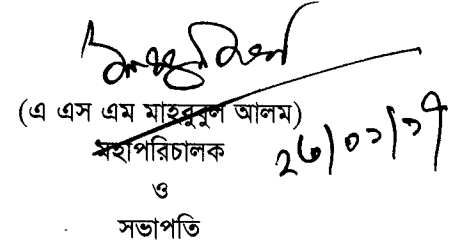 (এ এস এম মাহবুবুল আলম)
মহাপরিচালক
২৬/০১/১৭
ও
সভাপতি